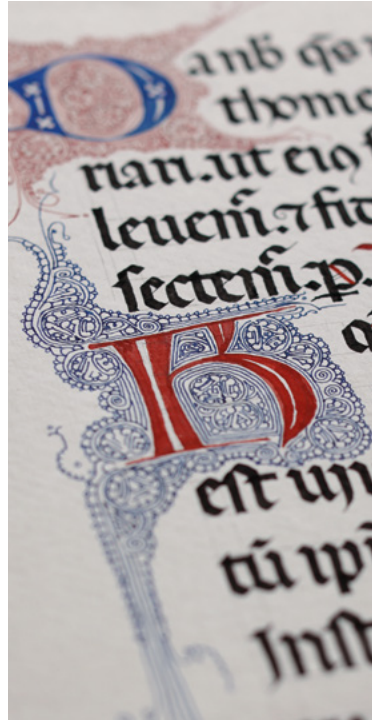 Da nb̄ q̄s
thome
riari.ut eiꝰ
leuem̄.⁊ fid
sectem̄.ꝑ.
est
tū ip̄i
Inst